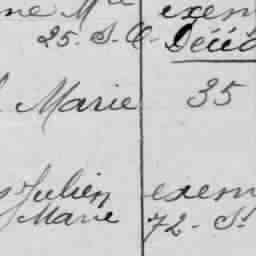 ne Mie exem
25. S. A. Décéd
Marie 35
Julien exem
Marie 72. St